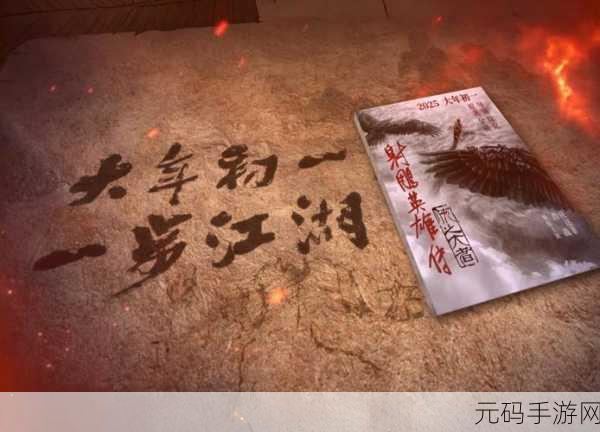 大年初一
一步江湖
2025 大年初一
射雕英雄传
侠之大者
元码手游网